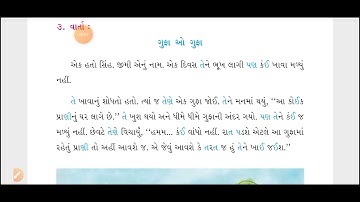 ૩. વાર્તા :
ગુફા ઓ ગુફા
એક હતો સિંહ. જીમી એનું નામ. એક દિવસ તેને ભૂખ લાગી પણ કંઈ ખાવા મળ્યું
નહીં.
તે ખાવાનું શોધતો હતો. ત્યાં જ તેણે એક ગુફા જોઈ. તેને મનમાં થયું, “આ કોઈક
પ્રાણીનું ઘર લાગે છે.” તે ખુશ થયો અને ધીમે ધીમે ગુફાની અંદર ગયો. પણ તેને કંઈ જ
મળ્યું નહીં. છેવટે તેણે વિચાર્યું, “હમમ... કંઈ વાંધો નહીં. રાત પડશે એટલે આ ગુફામાં
રહેતું પ્રાણી તો અહીં આવશે જ. એ જેવું આવશે કે તરત જ હું તેને ખાઈ જઈશ.”